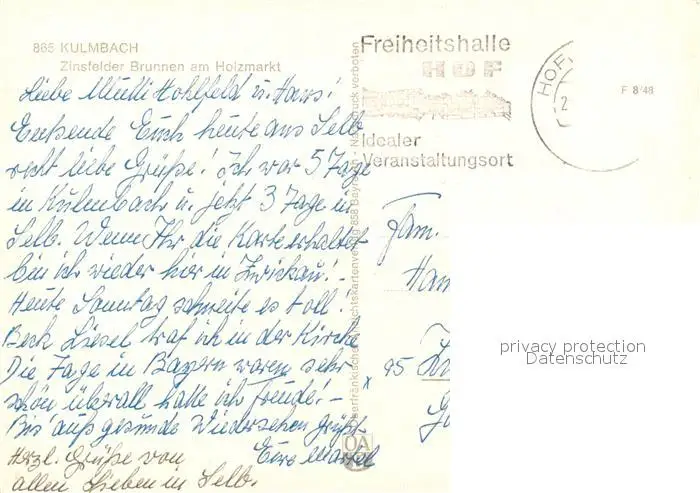 865 KULMBACH
Zinsfelder Brunnen am Holzmarkt
Liebe Mutti Hohlfeld u. Hans!
Euch heute aus Selb
recht liebe Grüße! Ich war 5 Tage
in Kulmbach u. jetzt 3 Tage in
Selb. Wenn Ihr die Karte erhaltet
bin ich wieder hier in Zwickau! -
Heute Sonntag schneite es toll!
Beck Liesel traf ich in der Kirche
Die Tage in Bayern waren sehr
schön überall hatte ich Freude! -
Bis auf gesunde Wiedersehen grüßt
Eure
Herzl. Grüße von
allen Lieben in Selb.
Freiheitshalle
HOF
Idealer
Veranstaltungsort
HOF
2
F 8/48
Fam.
Han
95 Zw
privacy protection
Datenschutz
x
OA